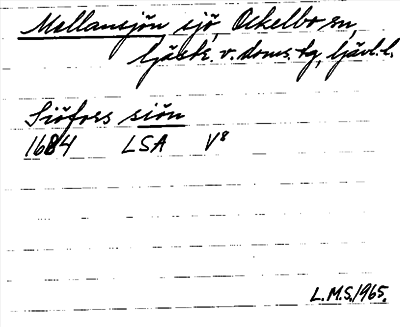 Mellansjön sjö, Ockelbo sn,
Gästr. v. doms. tg, Gävl. l.
Siöforss siön
1684 LSA V8
L.M.S. 1965.